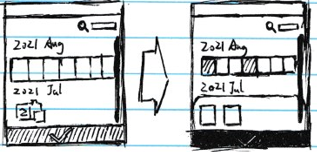 2021 Aug
2021 Jul
21
2021 Aug
2021 Jul